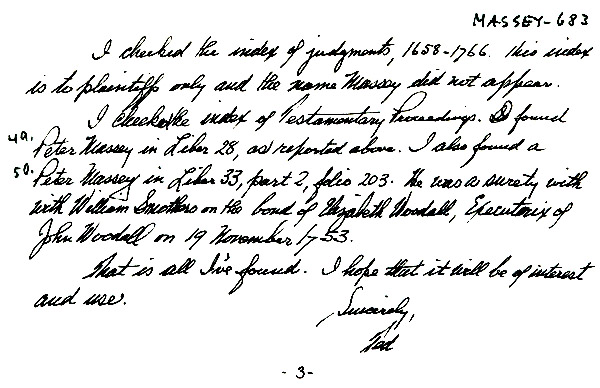 MASSEY-683
I checked the index of judgments, 1658-1766. This index
is to plaintiffs only and the name Massey did not appear.
I checked the index of Testamentary Proceedings. I found
49. Peter Massey in Liber 28, as reported above. I also found a
50. Peter Massey in Liber 33, part 2, folio 203. He was a surety with
with William Smothers on the bond of Elizabeth Woodall, Executrix of
John Woodall on 19 November 1753.
That is all I've found. I hope that it will be of interest
and use.
Sincerely,
Ted
-3-